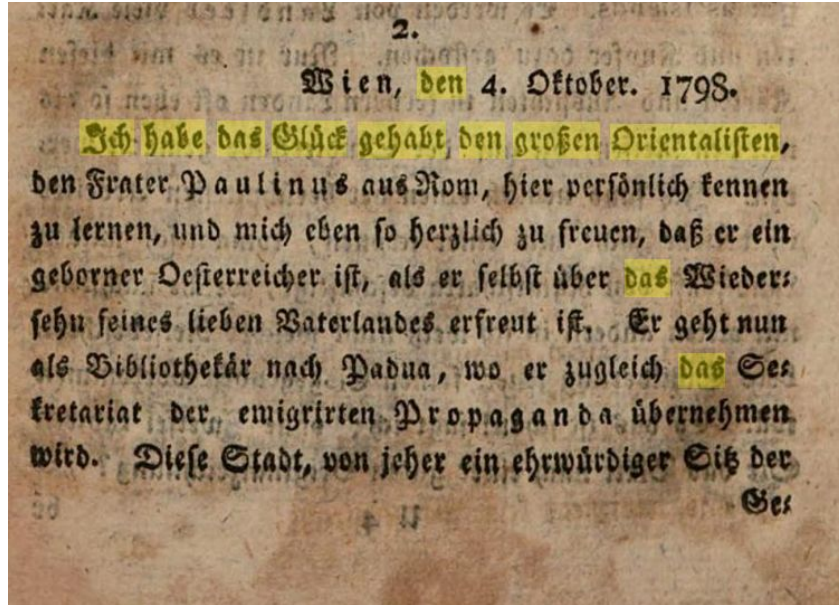 2.
Wien, den 4. Oktober. 1798.
Ich habe das Glück gehabt den großen Orientalisten,
den Frater Paulinus aus Rom, hier persönlich kennen
zu lernen, und mich eben so herzlich zu freuen, daß er ein
geborner Oesterreicher ist, als er selbst über das Wieder⸗
sehn seines lieben Vaterlandes erfreut ist. Er geht nun
als Bibliothekär nach Padua, wo er zugleich das Se⸗
kretariat der emigrirten Propaganda übernehmen
wird. Diese Stadt, von jeher ein ehrwürdiger Sitz der
Ge⸗